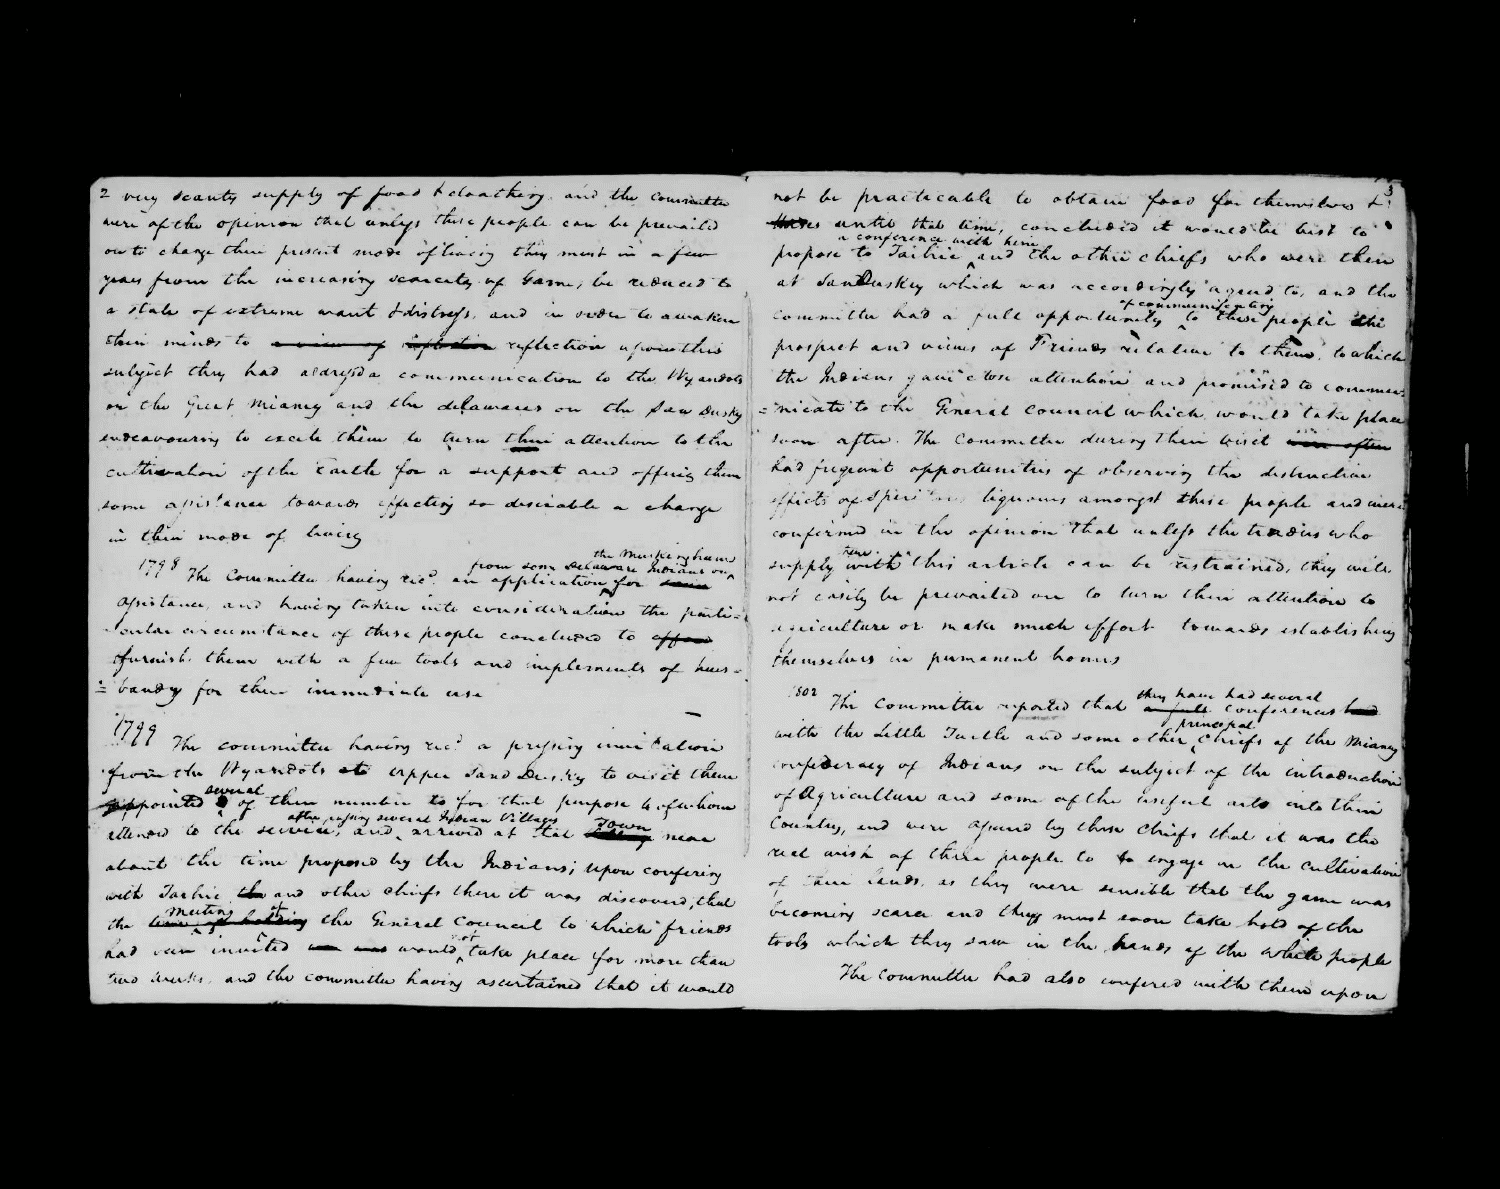 2 very scanty supply of food & cloathing. and the committee
were of the opinion that unless these people can be prevailed
on to change their present mode of living they must in a few
years from the increasing scarcity of Game, be reduced to
a state of extreme want & distress, and in order to awaken
their minds to a view of reflection reflection upon this
subject they had addressd a communication to the Wyandots
on the Great Miamy and the delawares on the San Dusky
endeavouring to excite them to turn their attention to the
cultivation of the Earth for a support and offering them
some assistance towards effecting so desirable a change
in their mode of living
the Muskinghum
1798 from some Delaware Indians on
The Committee having recd. an application for some
assistance, and having taken into consideration the parti=
=cular circumstance of these people concluded to afford
furnish them with a few tools and implements of hus=
=bandry for their immediate use
1799 The committee having recd. a pressing invitation
from the Wyandots at Upper San Dusky to visit them
several
appointed of their number to for that purpose 4 of whom
after passing several Indian Villages Town
attended to the service, and arrived at that near
about the time proposed by the Indians; upon confering
with Tarhie the and other chiefs there it was discovered, that
meeting of
the time of holding the General Council to which friends
had been invited would not take place for more than
two weeks. and the committee having ascertained that it would
3
not be practicable to obtain food for themselves &
horses until that time, concluded it would be best to
a conference with him
propose to Tarhie and the other chiefs who were then
at San Duskey which was accordingly agreed to, and the
of communicating
committee had a full opportunity to these people the
prospect and views of Friends relative to them, to which
the Indians gave close attention and promised to commu=
=nicate to the General Council which would take place
soon after. The Committee during their visit were often
had frequent opportunities of observing the destructive
effects of Spiritous liquours amongst these people and were
confirmed in the opinion that unless the traders who
supply them with this article can be restrained, they will
not easily be prevailed on to turn their attention to
agriculture or make much effort towards establishing
themselves in permanent homes
1802 they have had several
The Committee reported that a full conferences had
principal
with the Little Turtle and some other Chiefs of the Miamy
confederacy of Indians on the subject of the introduction
of Agriculture and some of the useful arts into their
Country, and were assured by those Chiefs that it was the
real wish of their people to engage in the cultivation
of their lands, as they were sensible that the game was
becoming scarce and they must soon take hold of the
tools which they saw in the hands of the white people
The Committee had also confered with them upon